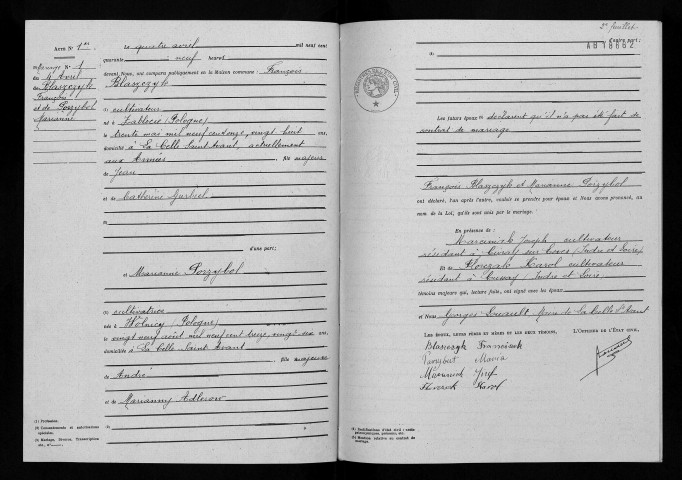 ACTE N° 1er
Mariage N° 1
du 4 Avril
Blaszczyk
François
et de Porzybol
Marianne
Le quatre avril mil neuf cent
quarante à neuf heures
devant Nous, ont comparu publiquement en la Maison commune : François
Blaszczyk
(1) cultivateur
né à (Pologne)
le trente mai mil neuf cent onze, vingt huit ans,
domicilié à La Celle Saint Avant, actuellement
aux Armées, fils majeur
de Jean
et de Catherine
d'une part;
et Marianne Porzybol
(1) cultivatrice
née à (Pologne)
le vingt neuf août mil neuf cent treize, vingt six ans,
domiciliée à La Celle Saint Avant
fille majeure
de André
et de Marianne Adlerow
(1) Profession.
(2) Consentements et autorisations
spéciales.
(3) Mariage, Divorce, Transcription
2e feuillet
d'autre part;
AB18662
Les futurs époux déclarent qu'il n'a pas été fait de
contrat de mariage
François Blaszczyk et Marianne Porzybol
ont déclaré, l'un après l'autre, vouloir se prendre pour époux et Nous avons prononcé, au
nom de la Loi, qu'ils sont unis par le mariage.
En présence de
Joseph cultivateur
résidant à (Indre et Loire)
Et de Karol cultivateur
résidant à (Indre et Loire)
témoins majeurs qui, lecture faite, ont signé avec les époux
et Nous Georges Maire de La Celle St Avant
LES ÉPOUX, LEURS PÈRES ET MÈRES ET LES DEUX TÉMOINS, L'OFFICIER DE L'ÉTAT CIVIL,
Blaszczyk Franciszek
Maria
Józef
Karol
(2) Mention relative au contrat de
mariage.